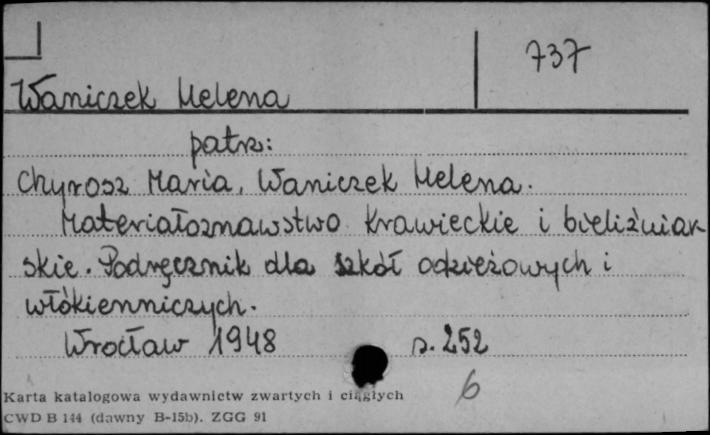 737
Waniczek Helena
patrz:
Chyrosz Maria, Waniczek Helena.
Materiałoznawstwo krawieckie i bieliźniar
skie. Podręcznik dla szkół odzieżowych i
włókienniczych.
Wrocław 1948 s. 252
6
Karta katalogowa wydawnictw zwartych i ciągłych
CWD B 144 (dawny B-15b). ZGG 91